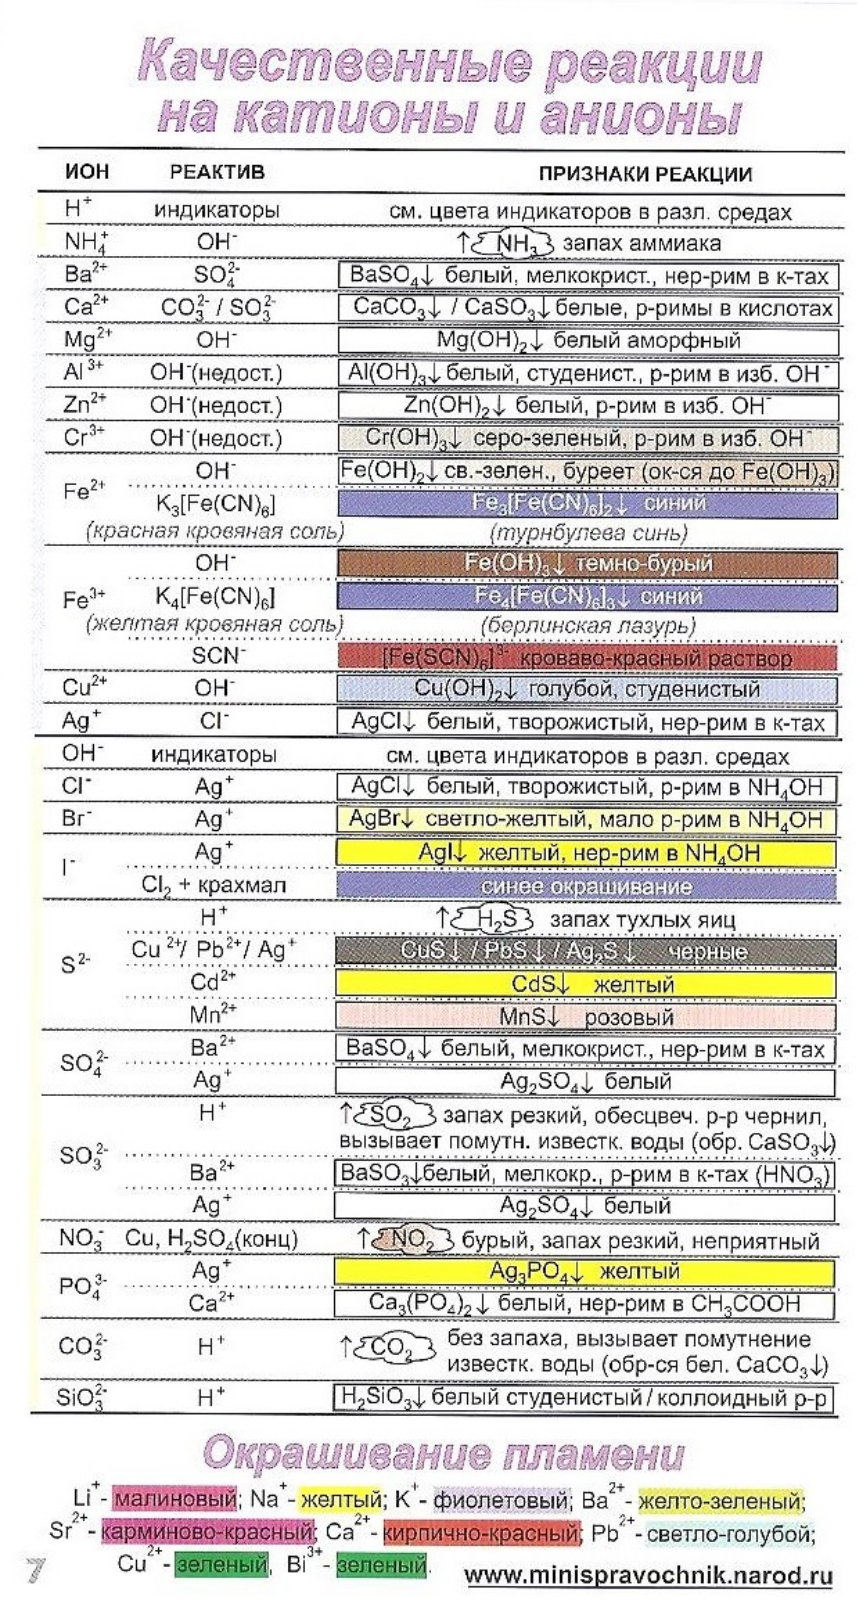 Качественные реакции
на катионы и анионы
ИОН РЕАКТИВ ПРИЗНАКИ РЕАКЦИИ
H⁺ индикаторы см. цвета индикаторов в разл. средах
NH₄⁺ OH⁻ ↑NH₃ запах аммиака
Ba²⁺ SO₄²⁻ BaSO₄↓ белый, мелкокрист., нер-рим в к-тах
Ca²⁺ CO₃²⁻ / SO₃²⁻ CaCO₃↓ / CaSO₃↓ белые, р-римы в кислотах
Mg²⁺ OH⁻ Mg(OH)₂↓ белый аморфный
Al³⁺ OH⁻(недост.) Al(OH)₃↓ белый, студенист., р-рим в изб. OH⁻
Zn²⁺ OH⁻(недост.) Zn(OH)₂↓ белый, р-рим в изб. OH⁻
Cr³⁺ OH⁻(недост.) Cr(OH)₃↓ серо-зеленый, р-рим в изб. OH⁻
Fe²⁺ OH⁻ Fe(OH)₂↓ св.-зелен., буреет (ок-ся до Fe(OH)₃)
K₃[Fe(CN)₆] Fe₃[Fe(CN)₆]₂↓ синий
(красная кровяная соль) (турнбулева синь)
OH⁻ Fe(OH)₃↓ темно-бурый
Fe³⁺ K₄[Fe(CN)₆] Fe₄[Fe(CN)₆]₃↓ синий
(желтая кровяная соль) (берлинская лазурь)
SCN⁻ [Fe(SCN)₆]³⁻ кроваво-красный раствор
Cu²⁺ OH⁻ Cu(OH)₂↓ голубой, студенистый
Ag⁺ Cl⁻ AgCl↓ белый, творожистый, нер-рим в к-тах
OH⁻ индикаторы см. цвета индикаторов в разл. средах
Cl⁻ Ag⁺ AgCl↓ белый, творожистый, р-рим в NH₄OH
Br⁻ Ag⁺ AgBr↓ светло-желтый, мало р-рим в NH₄OH
I⁻ Ag⁺ AgI↓ желтый, нер-рим в NH₄OH
Cl₂ + крахмал синее окрашивание
H⁺ ↑H₂S запах тухлых яиц
S²⁻ Cu²⁺/ Pb²⁺/ Ag⁺ CuS↓ / PbS↓ / Ag₂S↓ черные
Cd²⁺ CdS↓ желтый
Mn²⁺ MnS↓ розовый
SO₄²⁻ Ba²⁺ BaSO₄↓ белый, мелкокрист., нер-рим в к-тах
Ag⁺ Ag₂SO₄↓ белый
H⁺ ↑SO₂ запах резкий, обесцвеч. р-р чернил,
вызывает помутн. известк. воды (обр. CaSO₃↓)
SO₃²⁻ Ba²⁺ BaSO₃↓белый, мелкокр., р-рим в к-тах (HNO₃)
Ag⁺ Ag₂SO₄↓ белый
NO₃⁻ Cu, H₂SO₄(конц) ↑NO₂ бурый, запах резкий, неприятный
PO₄³⁻ Ag⁺ Ag₃PO₄↓ желтый
Ca²⁺ Ca₃(PO₄)₂↓ белый, нер-рим в CH₃COOH
CO₃²⁻ H⁺ ↑CO₂ без запаха, вызывает помутнение
известк. воды (обр-ся бел. CaCO₃↓)
SiO₃²⁻ H⁺ H₂SiO₃↓ белый студенистый / коллоидный р-р
Окрашивание пламени
Li⁺- малиновый; Na⁺- желтый; K⁺- фиолетовый; Ba²⁺- желто-зеленый;
Sr²⁺- карминово-красный; Ca²⁺- кирпично-красный; Pb²⁺- светло-голубой;
Cu²⁺- зеленый, Bi³⁺- зеленый.
7 www.minispravochnik.narod.ru